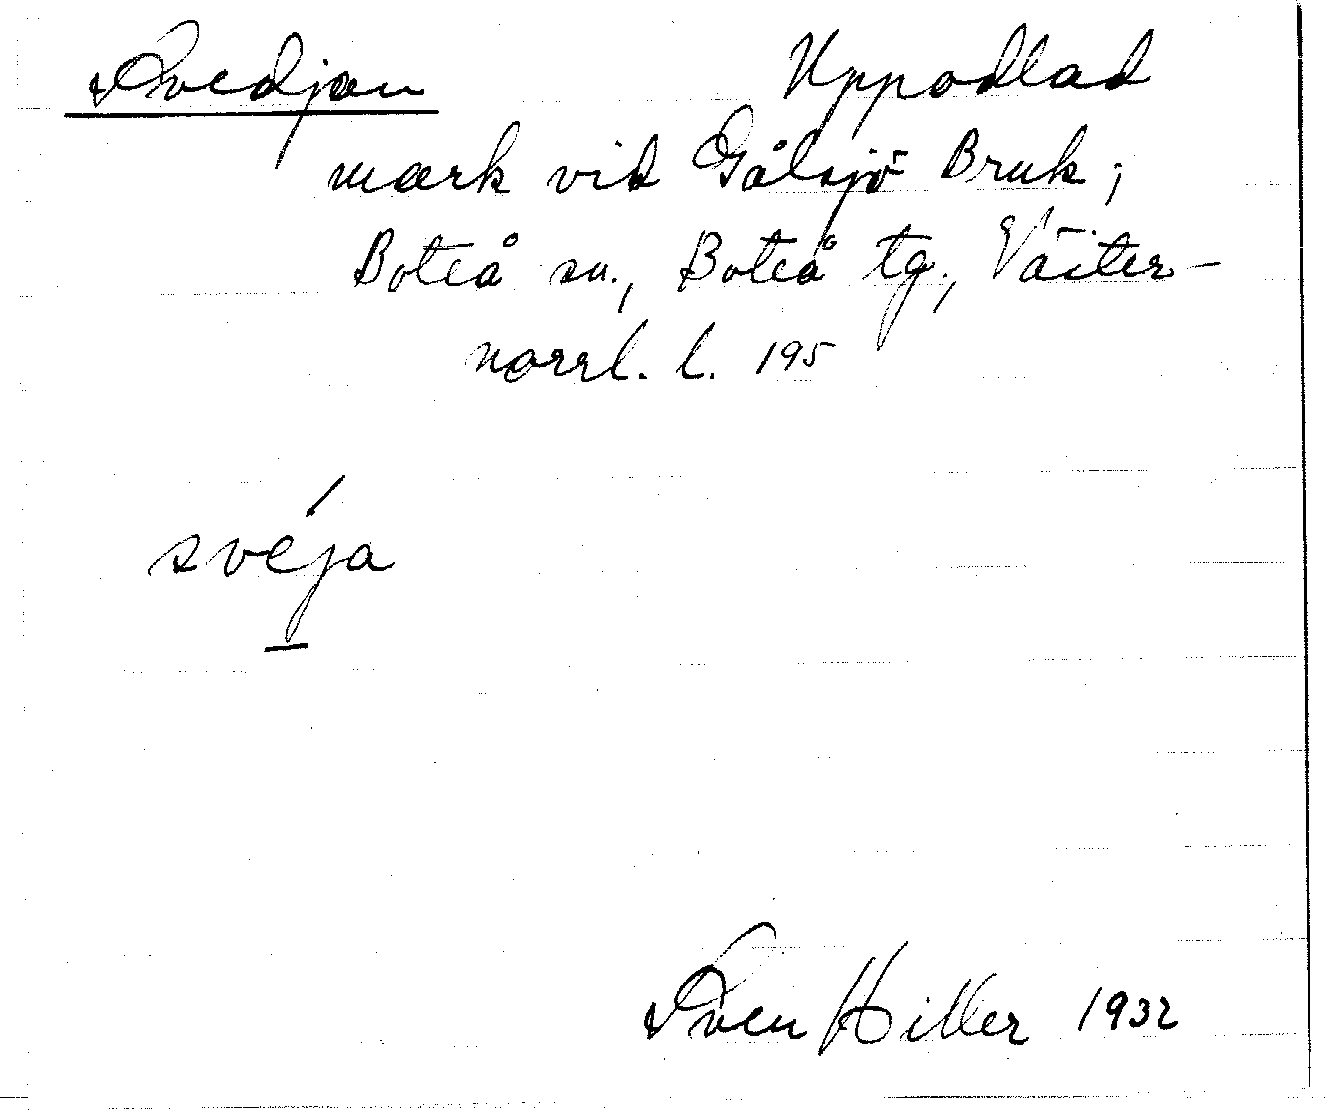 Svedjan Uppodlad
mark vid Gålsjö Bruk;
Boteå sn., Boteå tg., Väster-
norrl. l. 195
svéja
Sven Hiller 1932